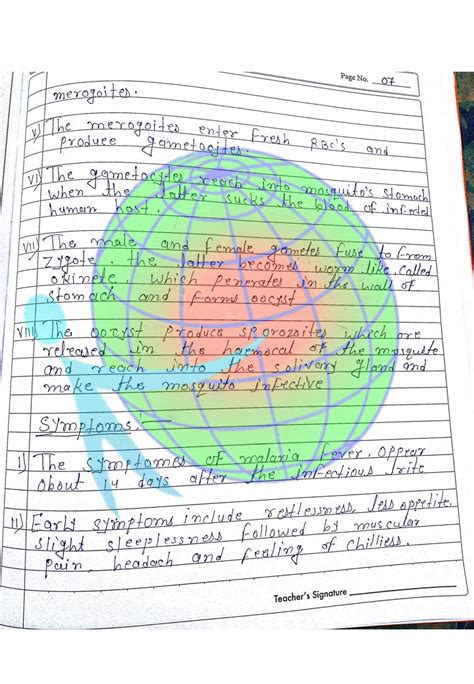 Page No. 07
merogoites.
v) The merogoites enter Fresh RBC's and
produce gametocites.
VI) The gametocytes reach into mosquito's stomach
when the latter sucks the blood of infected
human host.
VII) The male and female gametes fuse to from
zygote. the latter becomes worm like. called
okinete, which penerates in the wall of
stomach and forms oocyst
VIII) The oocyst produce sporozoites which are
released in the haemocal of the mosquito
and reach into the solivary gland and
make the mosquito infective
Symptoms:-
i) The symptomes of malaria fever. appear
about 14 days after the infectious
II) Early symptoms include restlessness, less appetite,
slight sleeplessness followed by muscular
pain, headach and feeling of chilliess.
Teacher's Signature